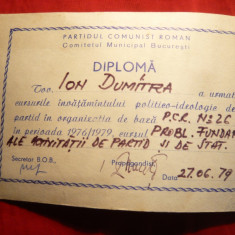 PARTIDUL COMUNIST ROMAN
Comitetul Municipal Bucureşti
DIPLOMĂ
Tov. ION DUMITRA a urmat
cursurile învăţămîntului politico-ideologic de
partid în organizaţia de bază P.C.R. N22C
în perioada 1976/1979, cursul PROBL. FUNDAM
ALE ACTIVITĂŢII DE PARTID ŞI DE STAT.
Secretar B.O.B., Propagandist,
Data 27.06.79